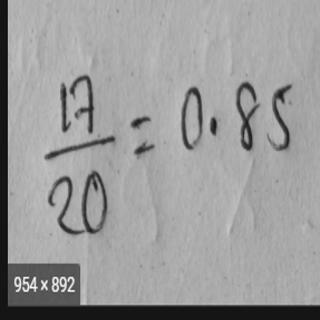 17/20 = 0.85
954 × 892